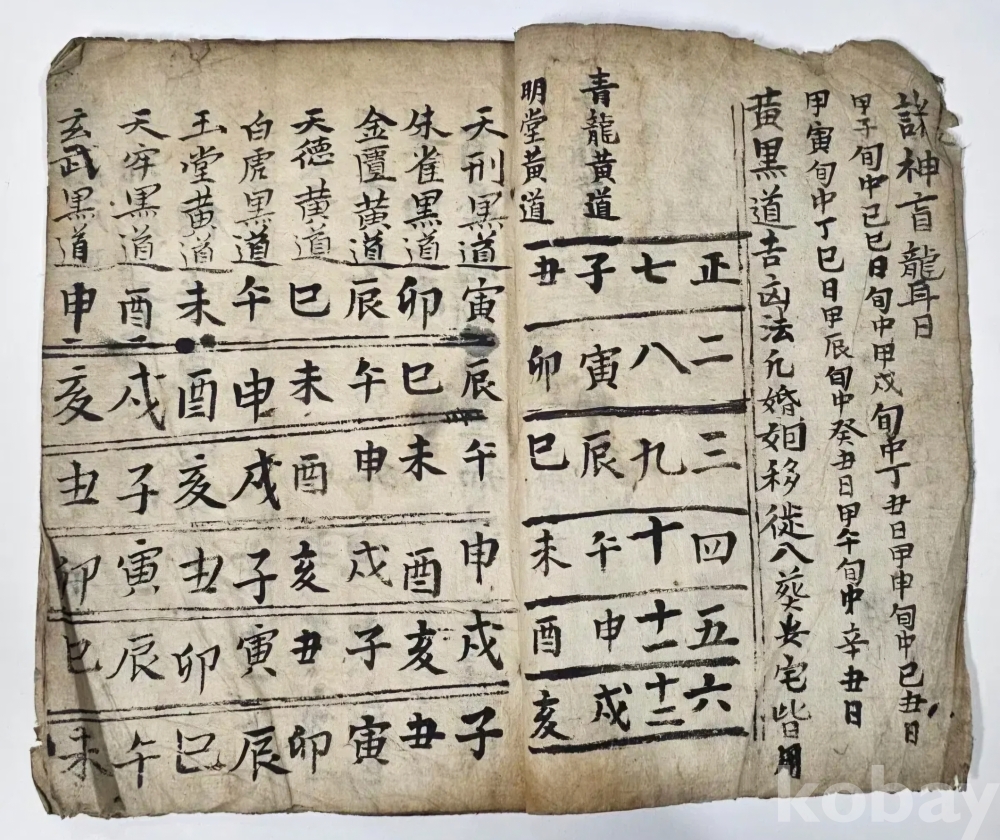 諸神盲聾日
甲子旬中己巳日旬中甲戌旬中丁丑日甲申旬中己丑日
甲寅旬中丁巳日甲辰旬中癸丑日甲午旬中辛丑日
黃黑道吉凶法凡婚姻移徙入葬安宅皆用
正二三四五六
七八九十十一十二
青龍黃道子寅辰午申戌
明堂黃道丑卯巳未酉亥
天刑黑道寅辰午申戌子
朱雀黑道卯巳未酉亥丑
金匱黃道辰午申戌子寅
天德黃道巳未酉亥丑卯
白虎黑道午申戌子寅辰
玉堂黃道未酉亥丑卯巳
天牢黑道酉戌子寅辰午
玄武黑道申亥丑卯巳未
kobay